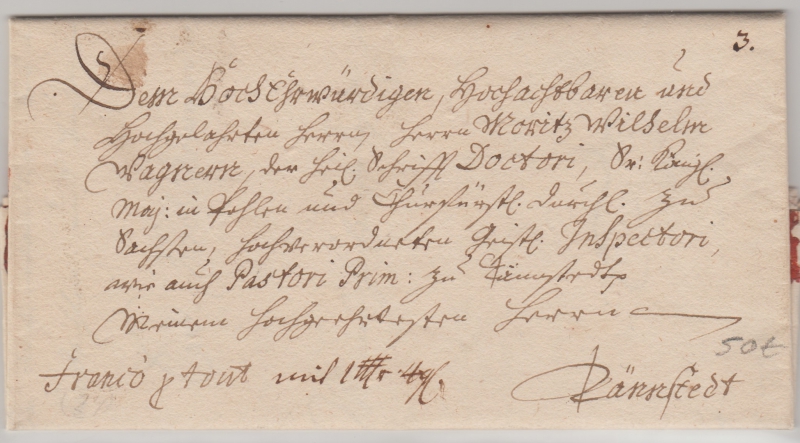 3.
Dem HochEhrwürdigen, Hochachtbaren und
Hochgelahrten Herrn, Herrn Moritz Wilhelm
Wagnern, der Heil. Schrifft Doctori, Sr: Königl.
Maj: in Pohlen und Churfürstl. Durchl. zu
Sachsen, Hochverordneten Geistl. Inspectori,
wie auch Pastori Prim: zu Tännstedt,
Meinem Hochgeehrtesten Herrn
50€
Franco p tout mit 1 4
Tännstedt